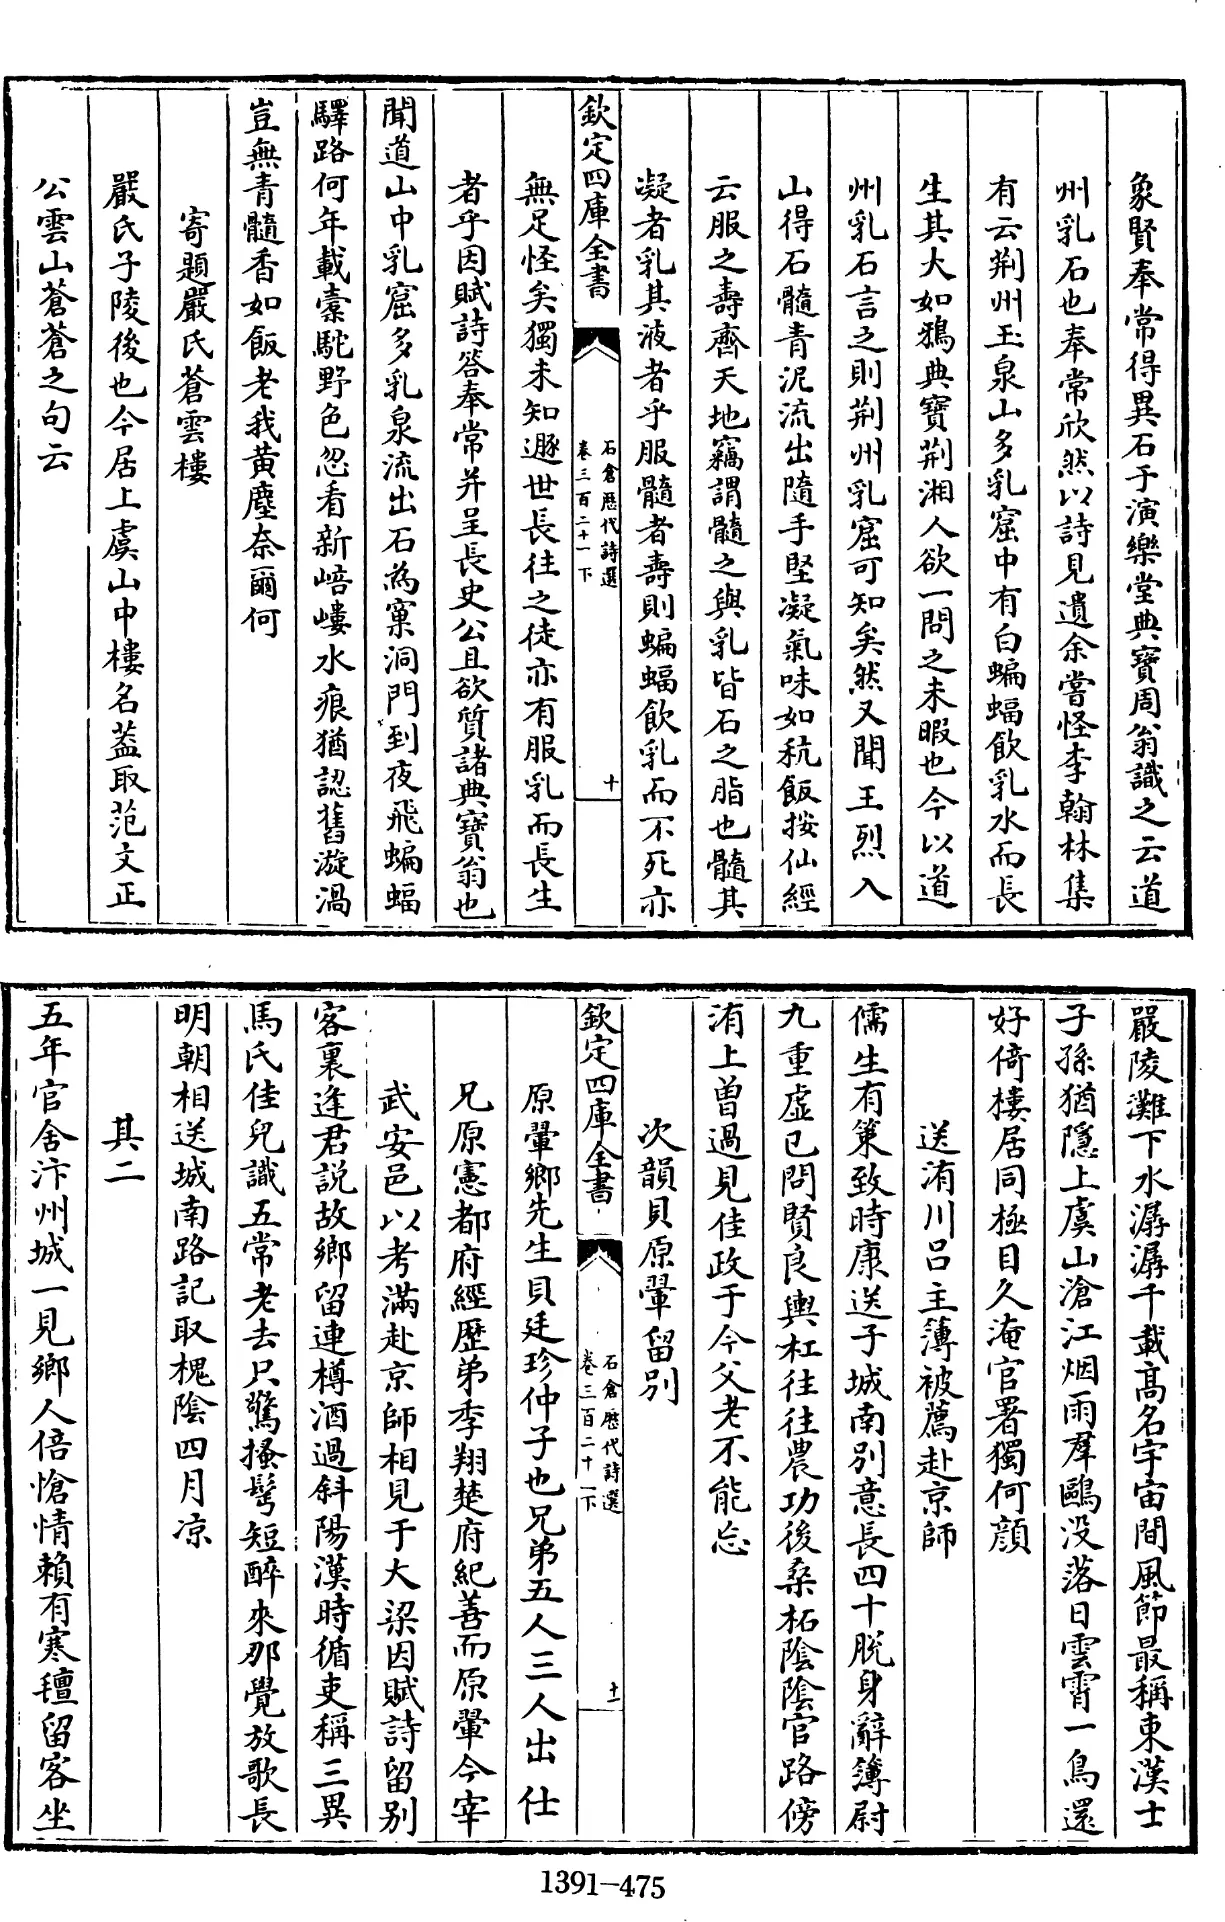 象賢奉常得異石于演樂堂典寶周翁識之云道
州乳石也奉常欣然以詩見遺余嘗怪李翰林集
有云荆州玉泉山多乳窟中有白蝙蝠飲乳水而長
生其大如鴉典寶荆湘人欲一問之未暇也今以道
州乳石言之則荆州乳窟可知矣然又聞王烈入
山得石髓青泥流出隨手堅凝氣味如秔飯按仙經
云服之壽齊天地竊謂髓之與乳皆石之脂也髓其
凝者乳其液者乎服髓者壽則蝙蝠飲乳而不死亦
欽定四庫全書
石倉歷代詩選
卷三百二十一下
十
無足怪矣獨未知遯世長往之徒亦有服乳而長生
者乎因賦詩答奉常并呈長史公且欲質諸典寶翁也
聞道山中乳窟多乳泉流出石為窠洞門到夜飛蝙蝠
驛路何年載橐駝野色忽看新㟝嶁水痕猶認舊漩渦
豈無青髓香如飯老我黄塵奈爾何
寄題嚴氏蒼雲樓
嚴氏子陵後也今居上虞山中樓名葢取范文正
公雲山蒼蒼之句云
嚴陵灘下水潺潺千載高名宇宙間風節最稱東漢士
子孫猶隱上虞山滄江烟雨羣鷗没落日雲霄一鳥還
好倚樓居同極目久淹官署獨何顔
送洧川吕主簿被薦赴京師
儒生有策致時康送子城南别意長四十脱身辭簿尉
九重虚已問賢良輿杠往往農功後桑柘陰陰官路傍
洧上曽過見佳政于今父老不能忘
次韻貝原翬留别
欽定四庫全書
石倉歷代詩選
卷三百二十一下
十一
原翬鄉先生貝廷珍仲子也兄弟五人三人出仕
兄原憲都府經歷弟季翔楚府紀善而原翬今宰
武安邑以考滿赴京師相見于大梁因賦詩留别
客裏逢君説故鄉留連樽酒過斜陽漢時循吏稱三異
馬氏佳兒識五常老去只驚搔髩短醉來那覺放歌長
明朝相送城南路記取槐陰四月凉
其二
五年官舍汴州城一見鄉人倍愴情賴有寒氊留客坐
1391-475